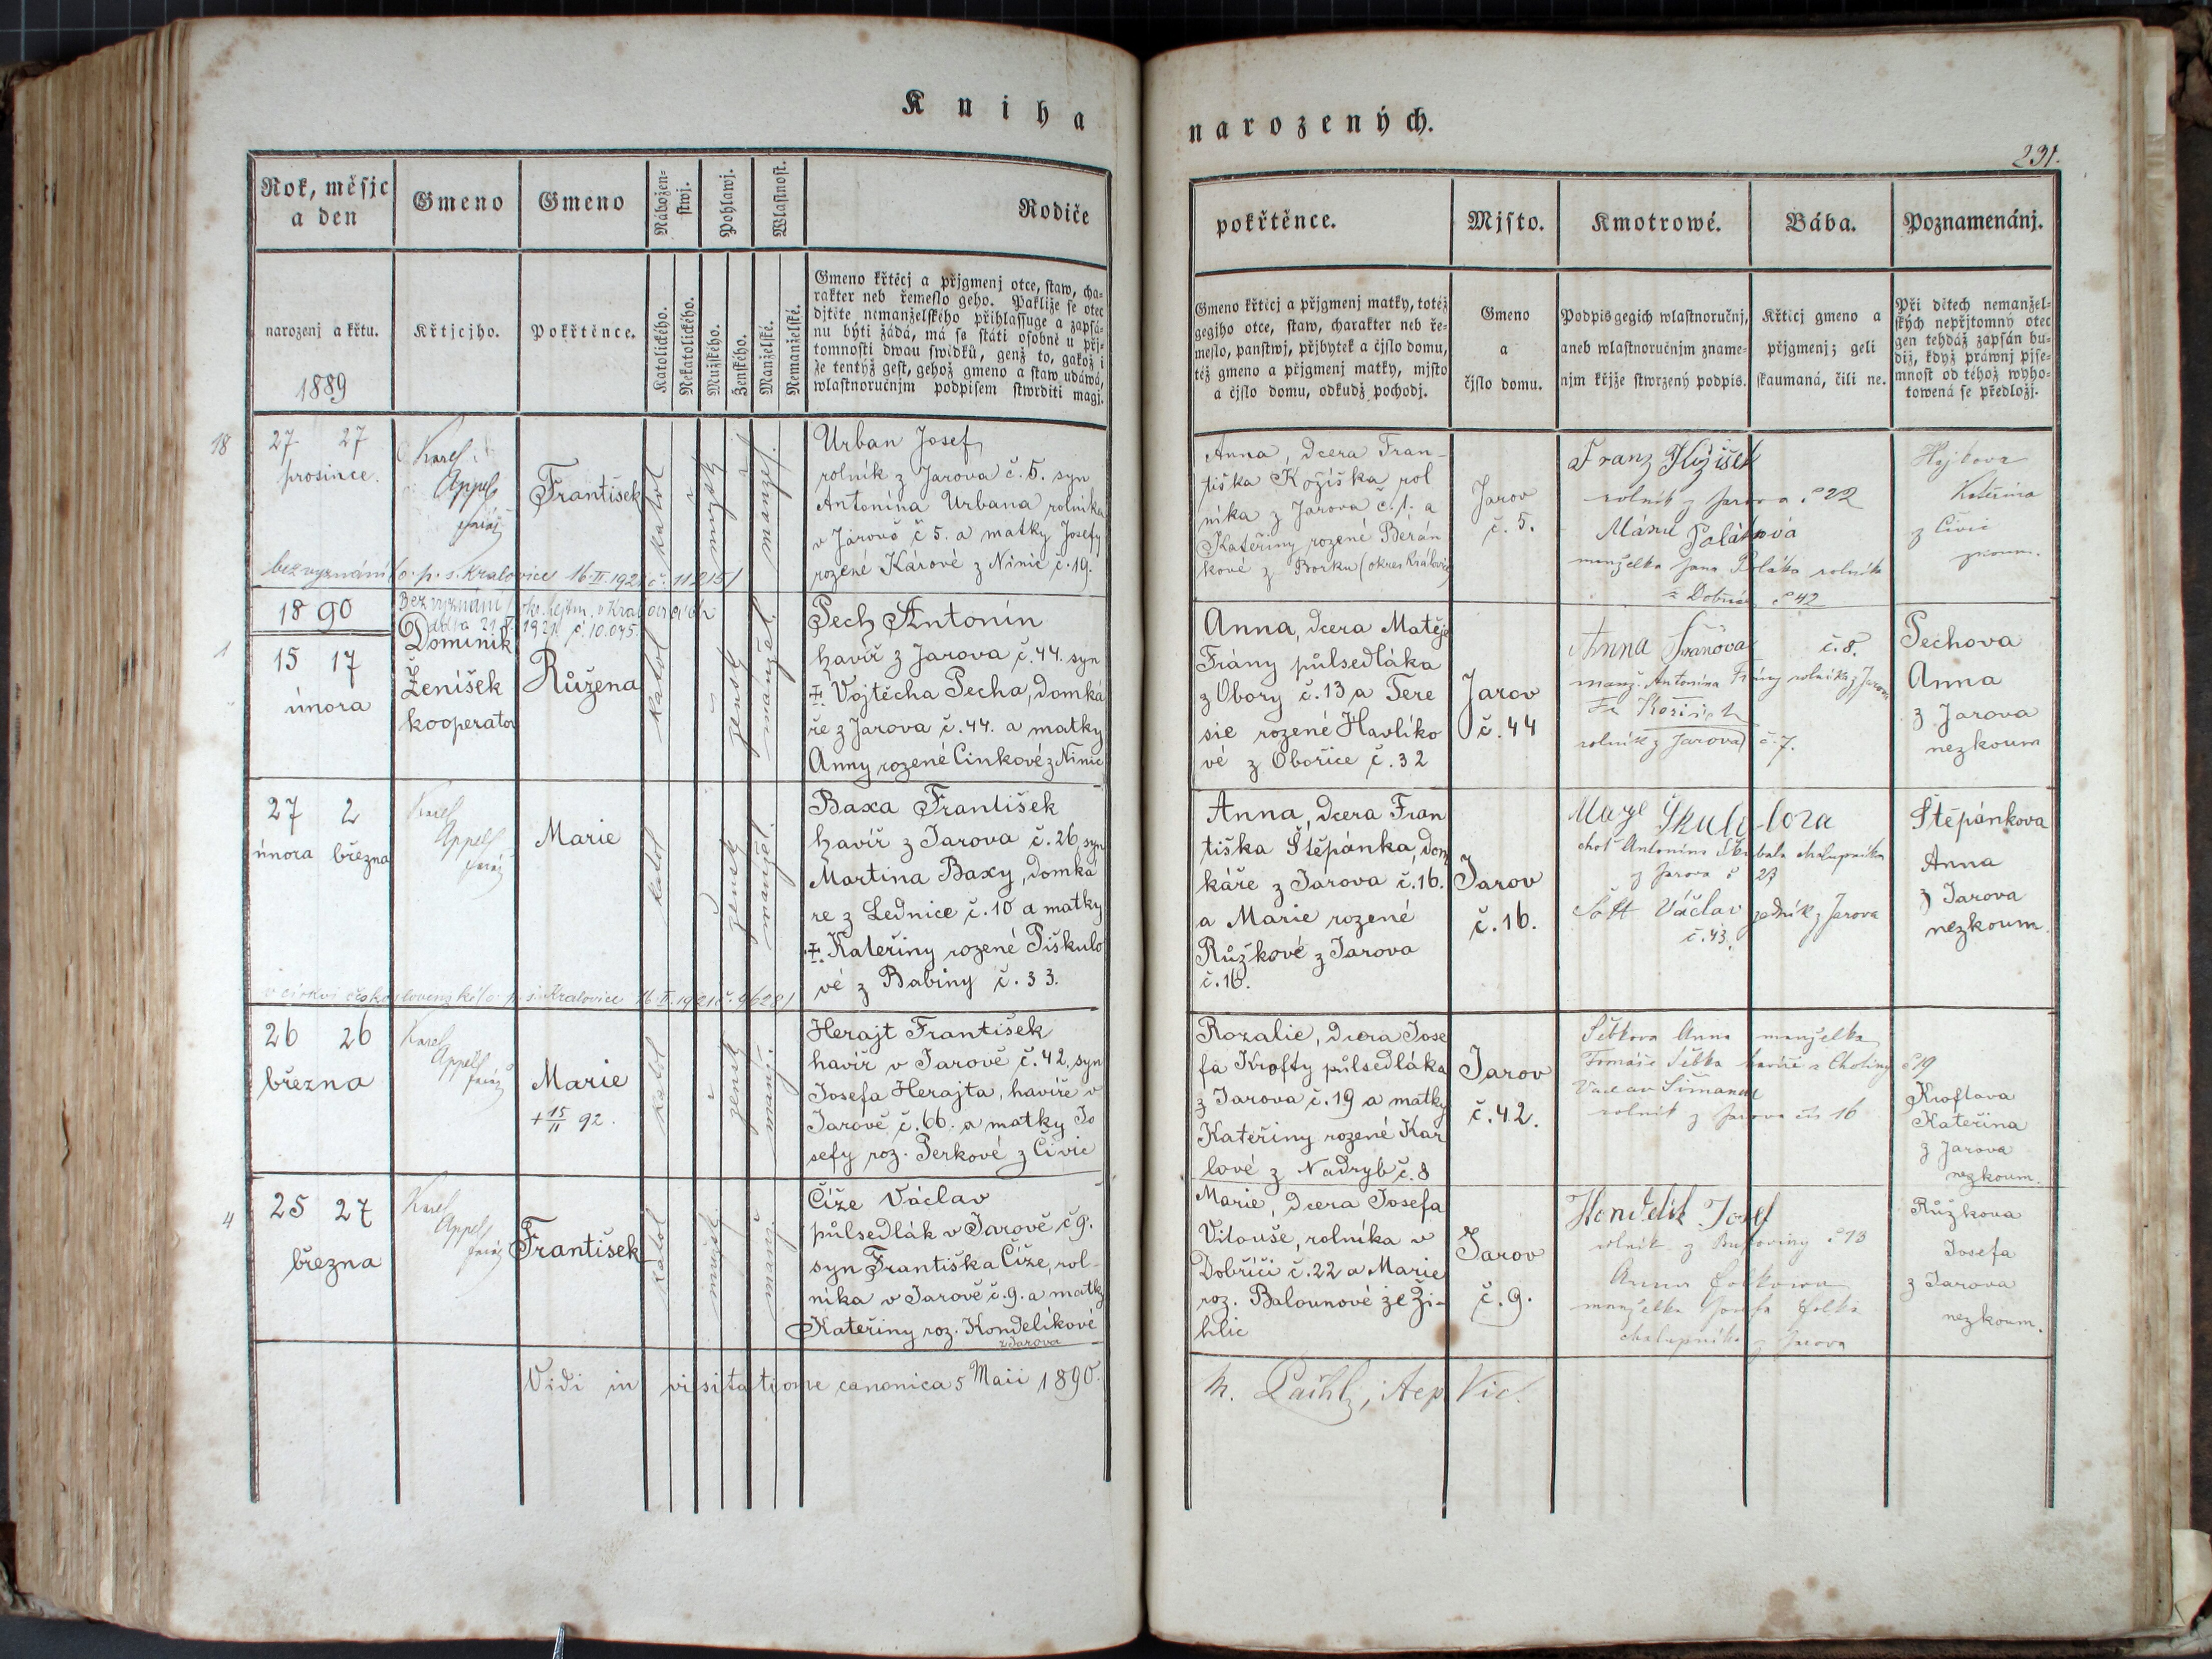 Kniha
narozených.
231.
Rok, měsjc
a den
narozenj a křtu.
1889
Gmeno
Křtjcjho.
Gmeno
Pokřtěnce.
Nábožen-
stwj.
Katolického.
Nekatolického.
Pohlawj.
Mužského.
Ženského.
Wlastnost.
Manželské.
Nemanželské.
Rodiče
Gmeno křtěcj a přjgmenj otce, staw, cha-
rakter neb řemeslo geho. Pakliže se otec
djtěte nemanželského přihlassuge a zapsá-
nu býti žádá, má se státi osobně u přj-
tomnosti dwau swědků, genž to, gakož i
že tentýž gest, gehož gmeno a staw udáwá,
wlastnoručnjm podpisem stwrditi magj.
pokřtěnce.
Gmeno křtěcj a přjgmenj matky, totéž
gegjho otce, staw, charakter neb ře-
meslo, panstwj, přjbytek a čjslo domu,
též gmeno a přjgmenj matky, mjsto
a čjslo domu, odkudž pochodj.
Mjsto.
Gmeno
a
čjslo domu.
Kmotrowé.
Podpis gegich wlastnoručnj,
aneb wlastnoručnjm zname-
njm křjže stwrzený podpis.
Bába.
Křticj gmeno a
přjgmenj; geli
skaumaná, čili ne.
Poznamenánj.
Při dětech nemanžel-
ských nepřjtomný otec
gen tehdáž zapsán bu-
diž, když práwnj pjse-
mnost od téhož wyho-
towená se předložj.
18
27 27
prosince.
Karel
Appel
farář
František
katol
mužský
manžel.
Urban Josef,
rolník z Jarova č. 5. syn
Antonína Urbana rolníka
v Jarově č 5. a matky Josefy
rozené Kárové z Ninic č. 19.
Anna, dcera Fran-
tiška Kožíška rol
níka z Jarova č. 1. a
Kateřiny rozené Berán
kové z Borku (okres Královic
Jarov
č. 5.
Franz Kožíšek
rolník z Jarova č 22
Polákova
manželka Jana Poláka rolníka
z Dobříč č 42
Hajkova
Kateřina
z Čivic
bez vyznání (o. p. s. Kralovice 16. II. 1921 č. 11215)
1890
Bez vyznání
1
15 17
února
Dominik
Ženíšek
kooperator
Růžena
katol
ženský
manžel.
Pech Antonín
havíř z Jarova č. 44. syn
Vojtěcha Pecha, domká
ře z Jarova č. 44. a matky
Anny rozené Cinkové z Ninic
Anna, dcera Matěje
Frány půlsedláka
z Obory č. 13 a Tere
sie rozené Havlíko
vé z Obořice č. 32
Jarov
č. 44
Anna Fránova č. 8.
manž. Antonína Frány rolníka z Jarova
Fr Kožíšek
rolník z Jarova č. 7.
Pechova
Anna
z Jarova
nezkoum
27 2
února března
Karel
Appel
farář
Marie
katol
ženský
manžel.
Baxa František
havíř z Jarova č. 26, syn
Martina Baxy, domká
ře z Lednice č. 10 a matky
Kateřiny rozené Piškulo
vé z Babiny č. 33.
Anna, dcera Fran
tiška Štěpánka, dom
káře z Jarova č. 16.
a Marie rozené
Růžkové z Jarova
č. 16.
Jarov
č. 16.
choť Antonína chalupníka
z Jarova č 27
Václav z Jarova
č. 43.
Štěpánkova
Anna
z Jarova
nezkoum.
v církvi československé (o. p. s. Kralovice 16. II. 1921 č. 9628)
26 26
března
Karel
Appel
farář
Marie
+ 15/11 92.
katol
žensk
manž.
Herajt František
havíř v Jarově č. 42, syn
Josefa Herajta, havíře v
Jarově č. 66. a matky Jo
sefy roz. Perkové z Čivic
Rozalie, dcera Jose
fa Krofty půlsedláka
z Jarova č. 19 a matky
Kateřiny rozené Kar
lové z Nadryb č. 8
Jarov
č. 42.
Anna manželka
Tomáše havíře z Chotiny č 19
Václav Šimanek
rolník z Jarova čís 16
Kroftova
Kateřina
z Jarova
nezkoum.
4
25 27
března
Karel
Appel
farář
František
katol
mužsk.
Číže Václav
půlsedlák v Jarově č 9.
syn Františka Číže, rol-
níka v Jarově č. 9. a matky
Kateřiny roz. Kondelíkové
z Jarova
Marie, dcera Josefa
Vitouše, rolníka v
Dobříči č. 22 a Marie
roz. Balounové ze Ži-
hlic
Jarov
č. 9.
Hondelík Josef
rolník z č 13
Anna
manželka Josefa
chalupníka z Jarova
Růžkova
Josefa
z Jarova
nezkoum.
Vidi in visitatione canonica 5 Maii 1890.
Vic.